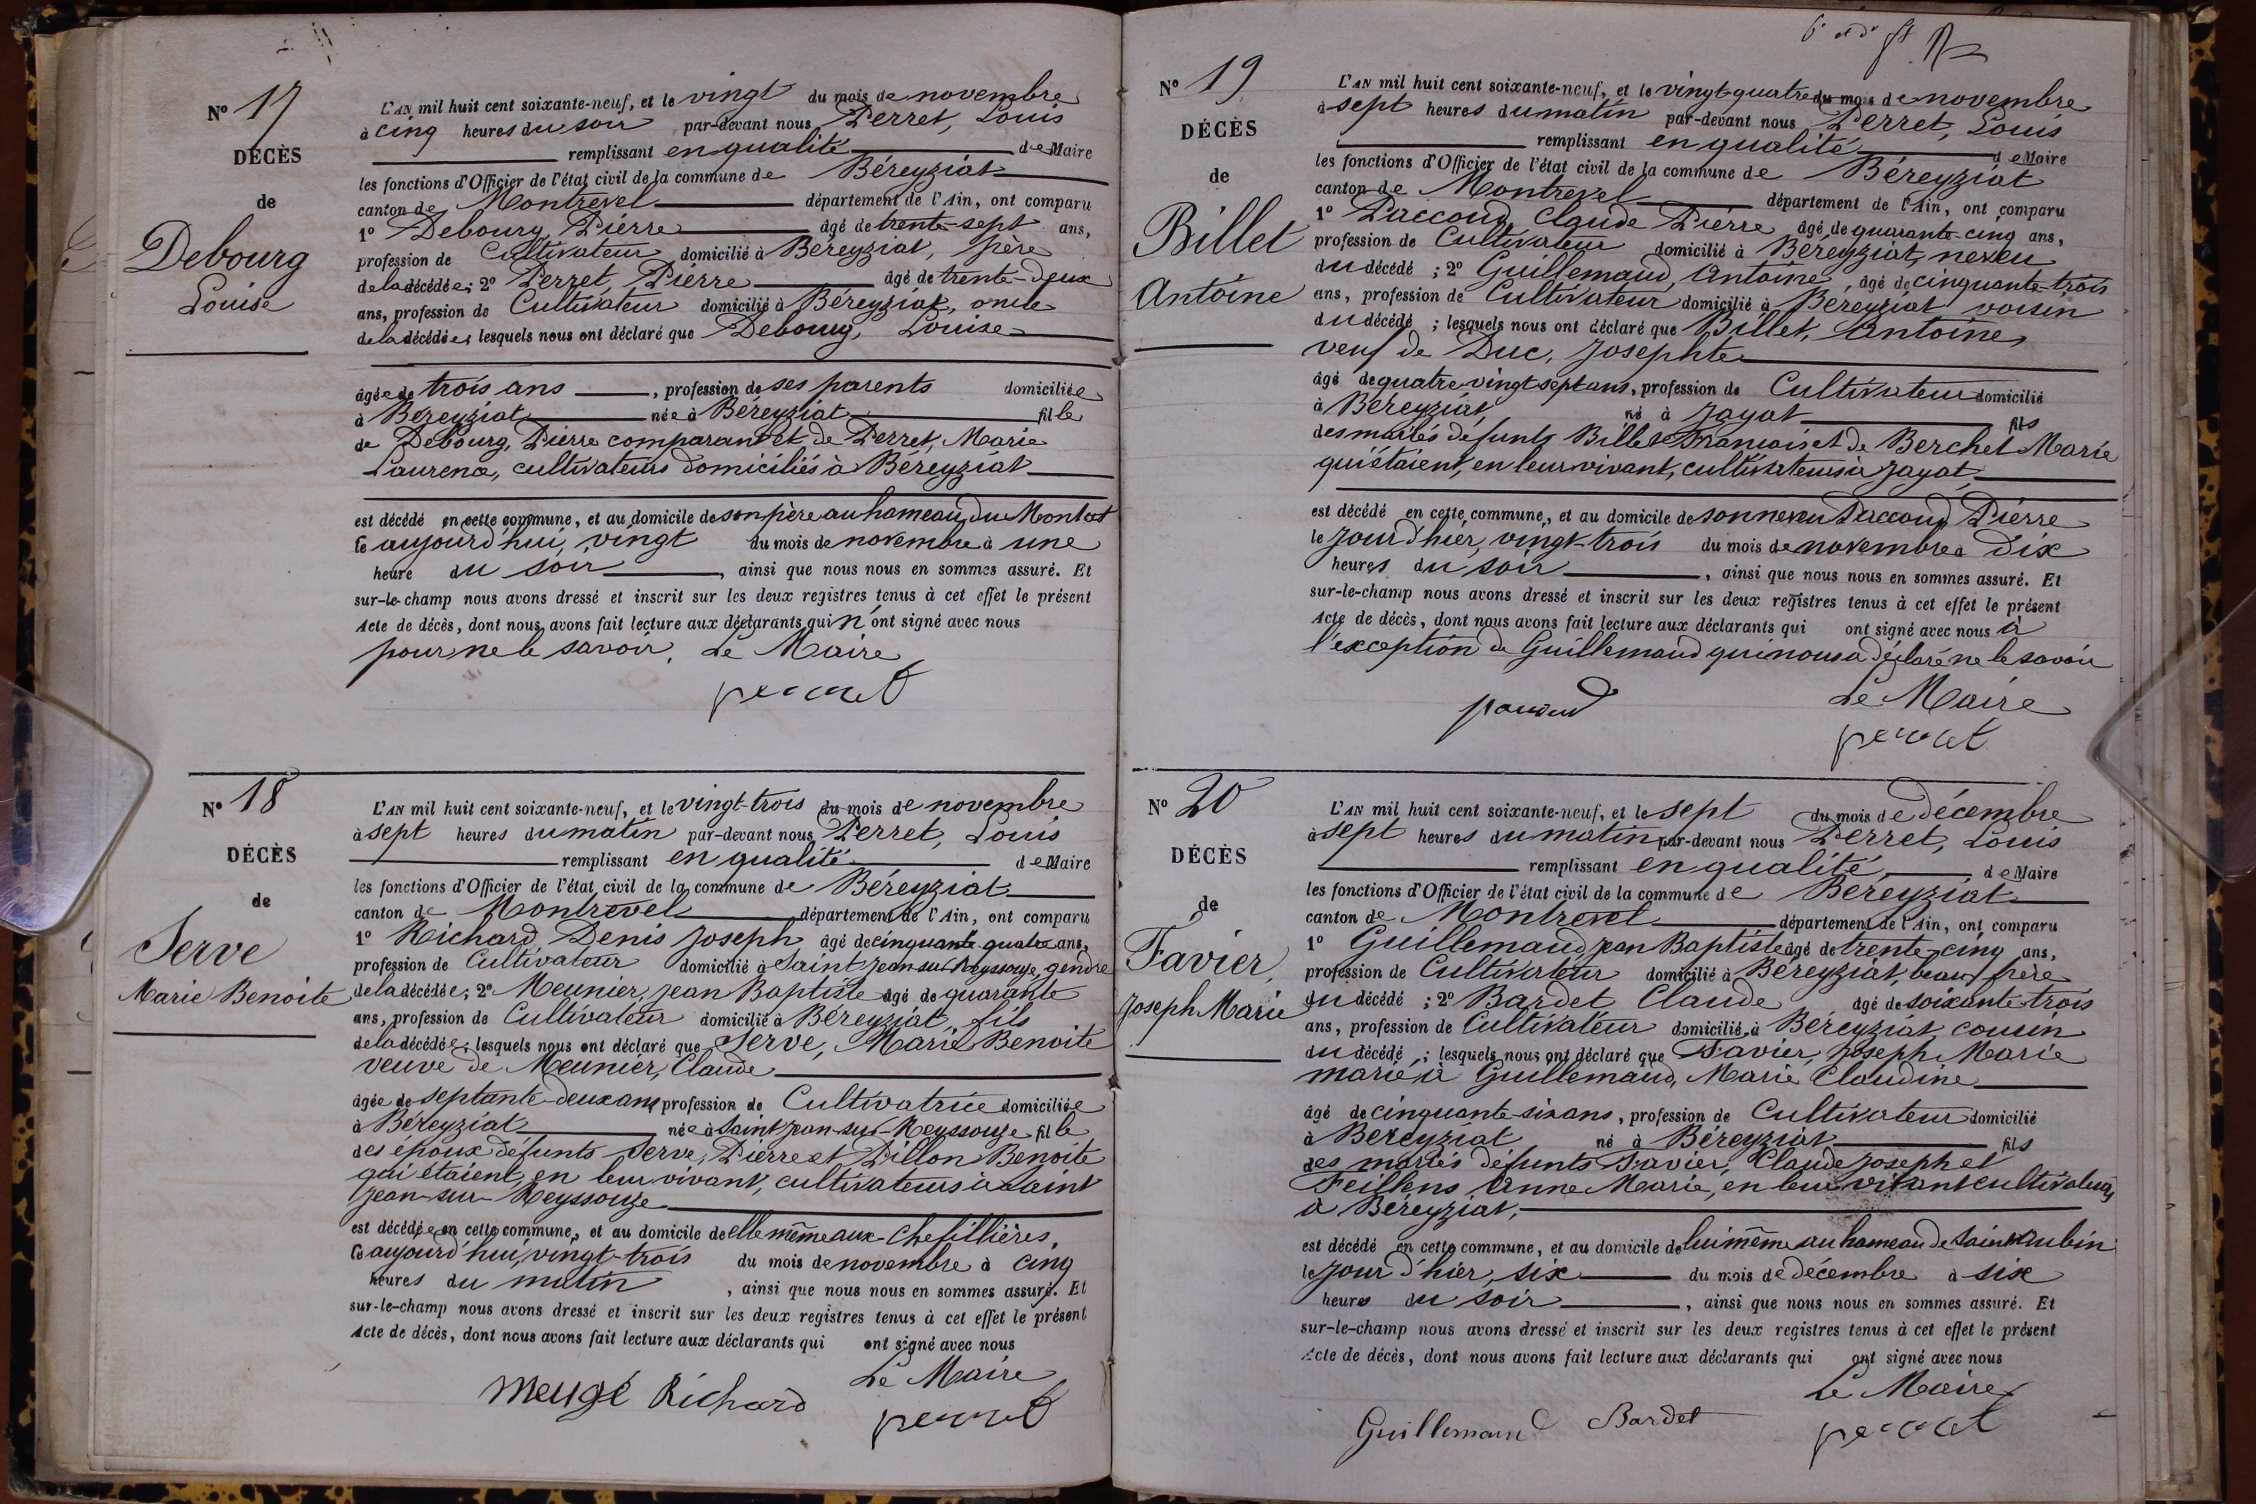 Nº 17
DÉCÈS
de
Debourg
Louise
L'AN mil huit cent soixante-neuf, et le vingt du mois de novembre
à cinq heures du soir par-devant nous Perret, Louis
remplissant en qualité de Maire
les fonctions d'Officier de l'état civil de la commune de Béreyziat
canton de Montrevel département de l'Ain, ont comparu
1º Debourg, Pierre âgé de trente-sept ans,
profession de Cultivateur domicilié à Béreyziat, père
de la décédée; 2º Perret, Pierre âgé de trente-deux
ans, profession de Cultivateur domicilié à Béreyziat, oncle
de la décédée; lesquels nous ont déclaré que Debourg, Louise
âgée de trois ans, profession de ses parents domiciliée
à Béreyziat née à Béreyziat fille
de Debourg, Pierre comparant et de Perret, Marie
Laurence, cultivateurs domiciliés à Béreyziat
est décédé en cette commune, et au domicile de son père au hameau du Montat
le aujourd'hui, vingt du mois de novembre à une
heure du soir, ainsi que nous nous en sommes assuré. Et
sur-le-champ nous avons dressé et inscrit sur les deux registres tenus à cet effet le présent
Acte de décès, dont nous avons fait lecture aux déclarants qui n'ont signé avec nous
pour ne le savoir. Le Maire
perret
Nº 18
DÉCÈS
de
Serve
Marie Benoite
L'AN mil huit cent soixante-neuf, et le vingt-trois du mois de novembre
à sept heures du matin par-devant nous Perret, Louis
remplissant en qualité de Maire
les fonctions d'Officier de l'état civil de la commune de Béreyziat
canton de Montrevel département de l'Ain, ont comparu
1º Richard, Denis Joseph âgé de cinquante-quatre ans,
profession de Cultivateur domicilié à Saint Jean-sur-Reyssouze, gendre
de la décédée; 2º Meunier, Jean Baptiste âgé de quarante
ans, profession de Cultivateur domicilié à Béreyziat, fils
de la décédée; lesquels nous ont déclaré que Serve, Marie Benoite
veuve de Meunier, Claude
âgée de septante-deux ans profession de Cultivatrice domiciliée
à Béreyziat née à Saint Jean-sur-Reyssouze fille
des époux défunts Serve, Pierre et Pillon Benoite
qui étaient, en leur vivant, cultivateurs à Saint
Jean-sur-Reyssouze
est décédée en cette commune, et au domicile de elle même aux-Chefillières,
le aujourd'hui, vingt-trois du mois de novembre à cinq
heures du matin, ainsi que nous nous en sommes assuré. Et
sur-le-champ nous avons dressé et inscrit sur les deux registres tenus à cet effet le présent
Acte de décès, dont nous avons fait lecture aux déclarants qui ont signé avec nous
Le Maire
Richard
perret
Nº 19
DÉCÈS
de
Billet
Antoine
L'AN mil huit cent soixante-neuf, et le vingt-quatre du mois de novembre
à sept heures du matin par-devant nous Perret, Louis
remplissant en qualité de Maire
les fonctions d'Officier de l'état civil de la commune de Béreyziat
canton de Montrevel département de l'Ain, ont comparu
1º Paccoud, Claude Pierre âgé de quarante-cinq ans,
profession de Cultivateur domicilié à Béreyziat, neveu
du décédé; 2º Guillemaud, Antoine, âgé de cinquante-trois
ans, profession de Cultivateur domicilié à Béreyziat voisin
du décédé; lesquels nous ont déclaré que Billet, Antoine,
veuf de Duc, Josephte
âgé de quatre-vingt sept ans, profession de Cultivateur domicilié
à Béreyziat né à Jayat fils
des mariés défunts Billet François et de Berchet Marie
qui étaient, en leur vivant, cultivateurs à Jayat,
est décédé en cette commune, et au domicile de son neveu Paccoud Pierre
le Jour d'hier, vingt-trois du mois de novembre à dix
heures du soir, ainsi que nous nous en sommes assuré. Et
sur-le-champ nous avons dressé et inscrit sur les deux registres tenus à cet effet le présent
Acte de décès, dont nous avons fait lecture aux déclarants qui ont signé avec nous à
l'exception de Guillemaud qui nous a déclaré ne le savoir
Le Maire
perret
Nº 20
DÉCÈS
de
Favier,
Joseph Marie
L'AN mil huit cent soixante-neuf, et le sept du mois de décembre
à sept heures du matin par-devant nous Perret, Louis
remplissant en qualité de Maire
les fonctions d'Officier de l'état civil de la commune de Béreyziat
canton de Montrevel département de l'Ain, ont comparu
1º Guillemaud, Jean Baptiste âgé de trente-cinq ans,
profession de Cultivateur domicilié à Béreyziat, beau frère
du décédé; 2º Bardet Claude, âgé de soixante-trois
ans, profession de Cultivateur domicilié à Béreyziat cousin
du décédé; lesquels nous ont déclaré que Favier, Joseph Marie
marié à Guillemaud, Marie Claudine
âgé de cinquante-six ans, profession de Cultivateur domicilié
à Béreyziat né à Béreyziat fils
des mariés défunts Favier, Claude Joseph et
Feillens Anne Marie, en leur vivant cultivateurs
à Béreyziat,
est décédé en cette commune, et au domicile de lui même au hameau de Saint Aubin
le jour d'hier, six du mois de décembre à six
heures du soir, ainsi que nous nous en sommes assuré. Et
sur-le-champ nous avons dressé et inscrit sur les deux registres tenus à cet effet le présent
Acte de décès, dont nous avons fait lecture aux déclarants qui ont signé avec nous
Le Maire
Guillemaud Bardet
perret